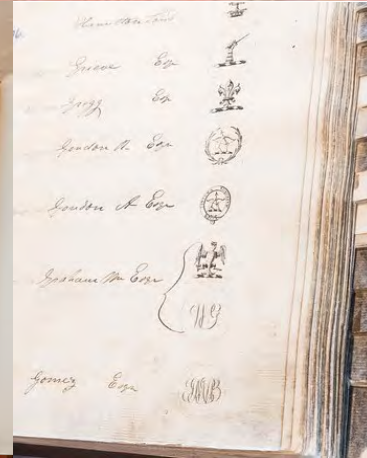 Grieve Esqr
Grigg Esqr
Gordon W. Esqr
Gordon A Esqr
Graham Wm Esqr
WG
Gomez Esqr